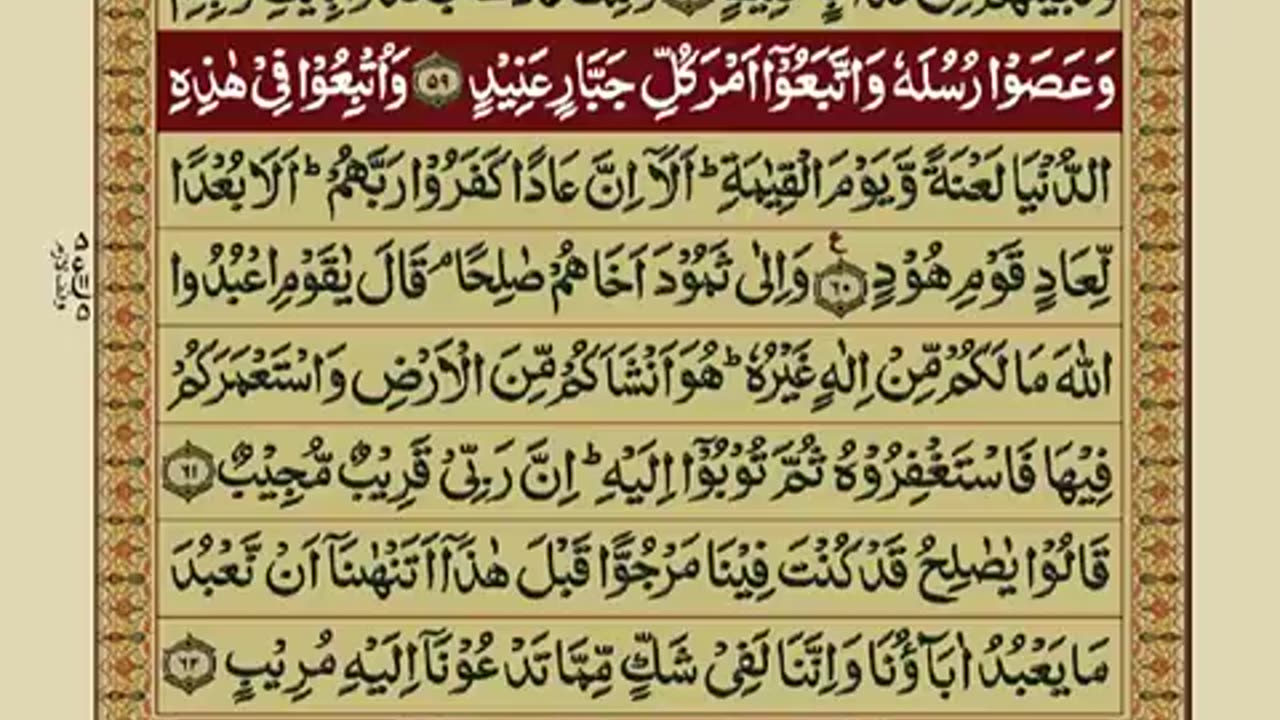 وَعَصَوۡا رُسُلَهٗ وَاتَّبَعُوۡۤا اَمۡرَ كُلِّ جَبَّارٍ عَنِيۡدٍ ﴿۵۹﴾ وَاُتۡبِعُوۡا فِىۡ هٰذِهِ
الدُّنۡيَا لَعۡنَةً وَّيَوۡمَ الۡقِيٰمَةِ ؕ اَلَاۤ اِنَّ عَادًا كَفَرُوۡا رَبَّهُمۡ ؕ اَلَا بُعۡدًا
لِّعَادٍ قَوۡمِ هُوۡدٍ ﴿۶۰﴾ ع وَاِلٰى ثَمُوۡدَ اَخَاهُمۡ صٰلِحًا ۘ قَالَ يٰقَوۡمِ اعۡبُدُوا
اللّٰهَ مَا لَكُمۡ مِّنۡ اِلٰهٍ غَيۡرُهٗ ؕ هُوَ اَنۡشَاَكُمۡ مِّنَ الۡاَرۡضِ وَاسۡتَعۡمَرَكُمۡ
فِيۡهَا فَاسۡتَغۡفِرُوۡهُ ثُمَّ تُوۡبُوۡۤا اِلَيۡهِ ؕ اِنَّ رَبِّىۡ قَرِيۡبٌ مُّجِيۡبٌ ﴿۶۱﴾
قَالُوۡا يٰصٰلِحُ قَدۡ كُنۡتَ فِيۡنَا مَرۡجُوًّا قَبۡلَ هٰذَاۤ اَتَنۡهٰٮنَاۤ اَنۡ نَّعۡبُدَ
مَا يَعۡبُدُ اٰبَآؤُنَا وَاِنَّنَا لَفِىۡ شَكٍّ مِّمَّا تَدۡعُوۡنَاۤ اِلَيۡهِ مُرِيۡبٍ ﴿۶۲﴾